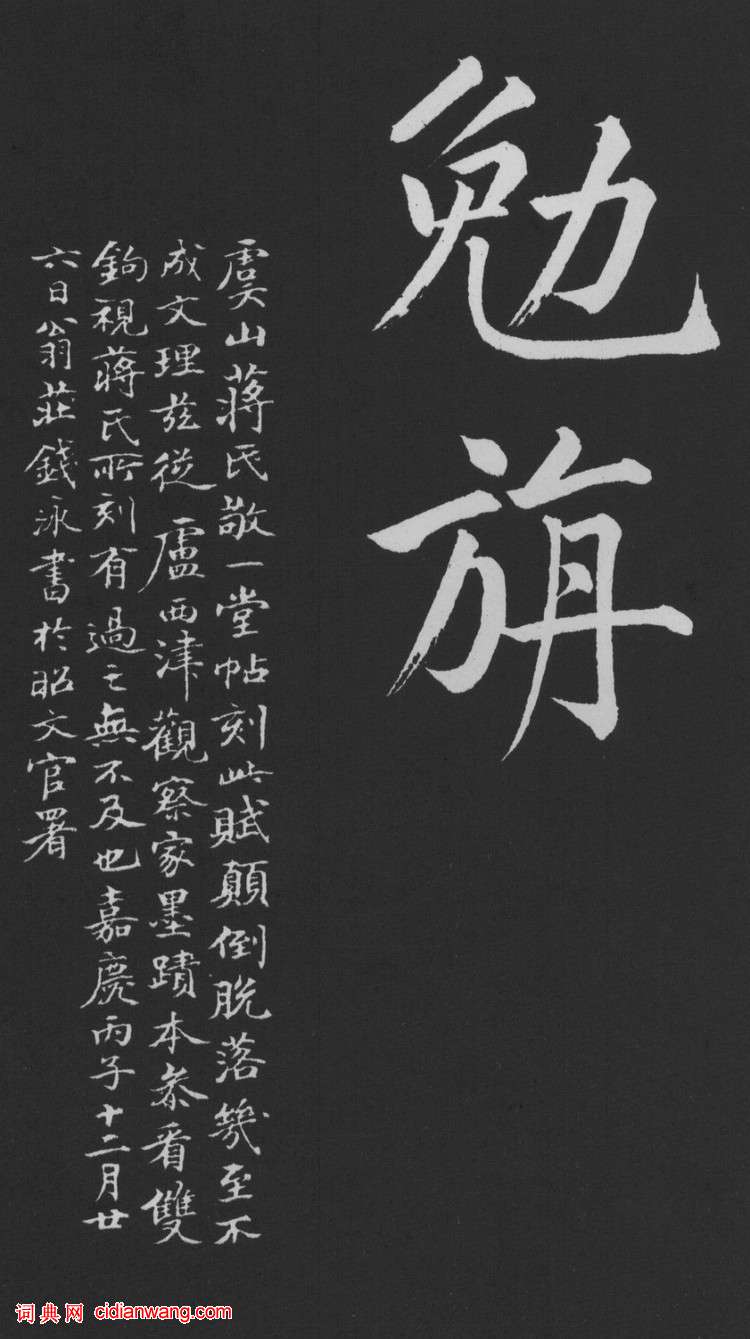 勉旃
虞山蔣氏敬一堂帖刻此賦顛倒脫落幾至不
成文理茲從盧西津觀察家墨蹟本叅看雙
鉤視蔣氏所刻有過之無不及也嘉慶丙子十二月廿
六日翁莊錢泳書於昭文官署
词典网 cidianwang.com